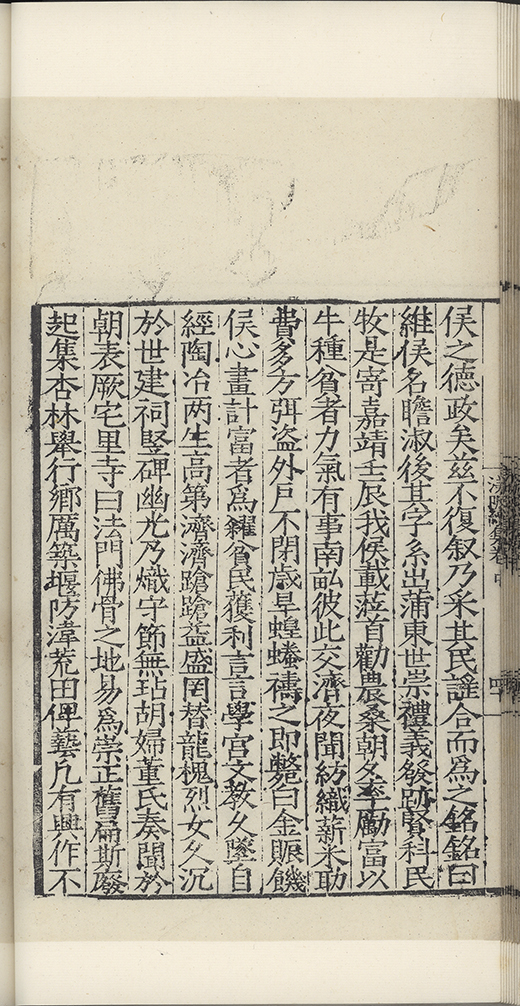 侯之德政矣茲不復叙乃采其民謠合而為之銘銘曰
維侯名瞻淑後其字系出蒲東世崇禮義發跡賢科民
牧是寄嘉靖壬辰我侯載蒞首勸農桑朝夕率勵富以
牛種貧者力氣有事南畆彼此交濟夜聞紡織薪米助
費多方弭盗外戶不閉歲旱蝗蟠禱之即斃曰金賑饑
侯心畫計富者為糴貧民獲利言言學宮文教久墜自
經陶冶两生高第濟濟蹌蹌益盛罔替龍槐烈女久沉
於世建祠竪碑幽光乃熾守節無玷胡婦董氏奏聞於
朝表厥宅里寺曰法門佛骨之地易為崇正舊扁斯廢
起集杏林舉行鄉厲築堰防湋荒田俾藝凡有興作不